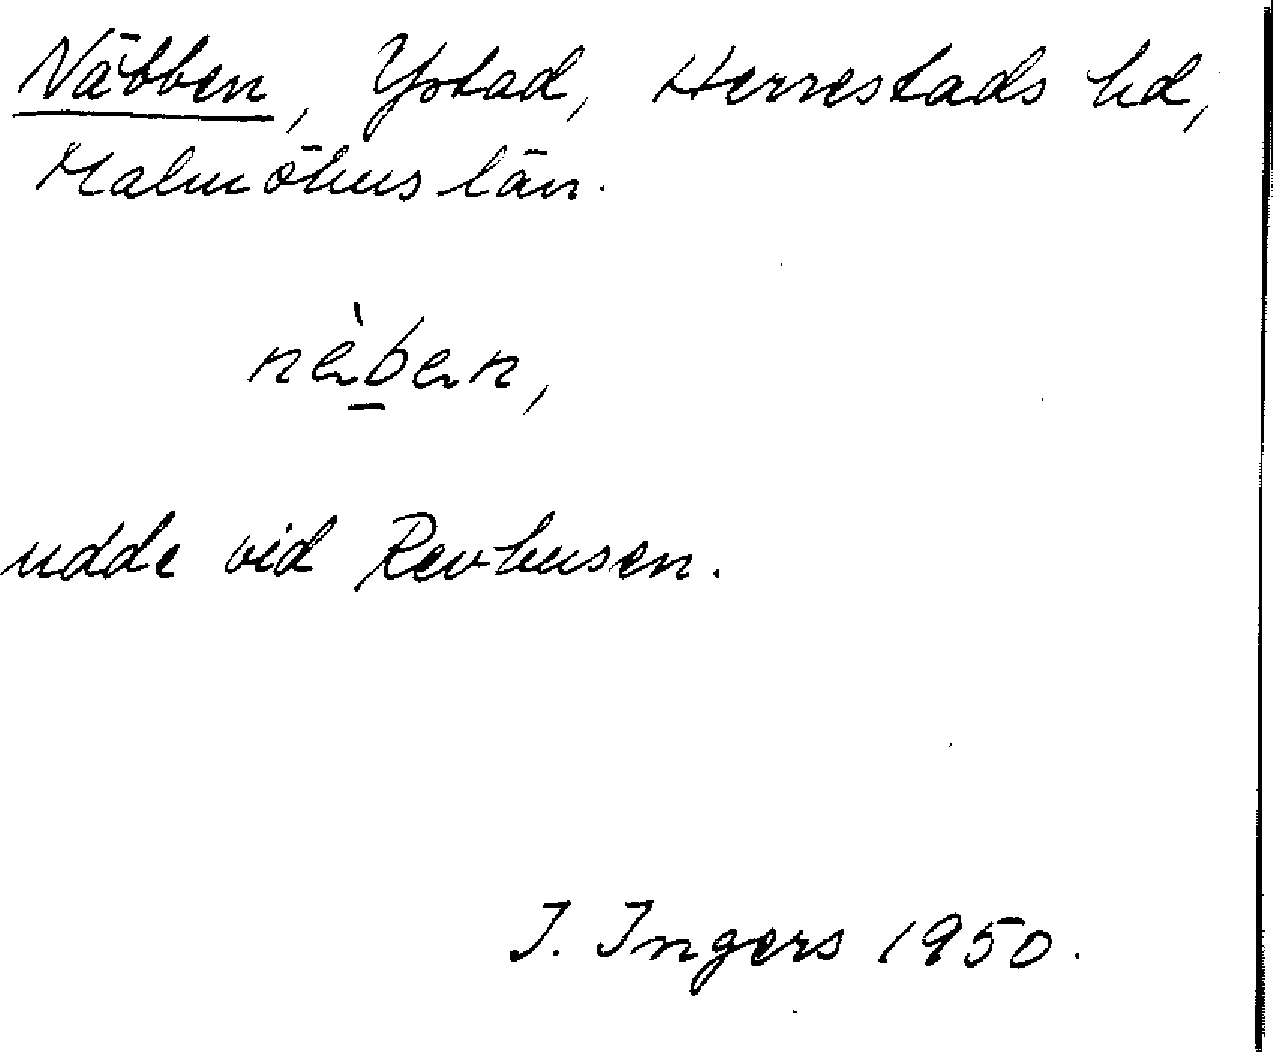 Näbben, Ystad, Herrestads hd,
Malmöhus län.
nèben,
udde vid Revhusen.
I. Ingers 1950.